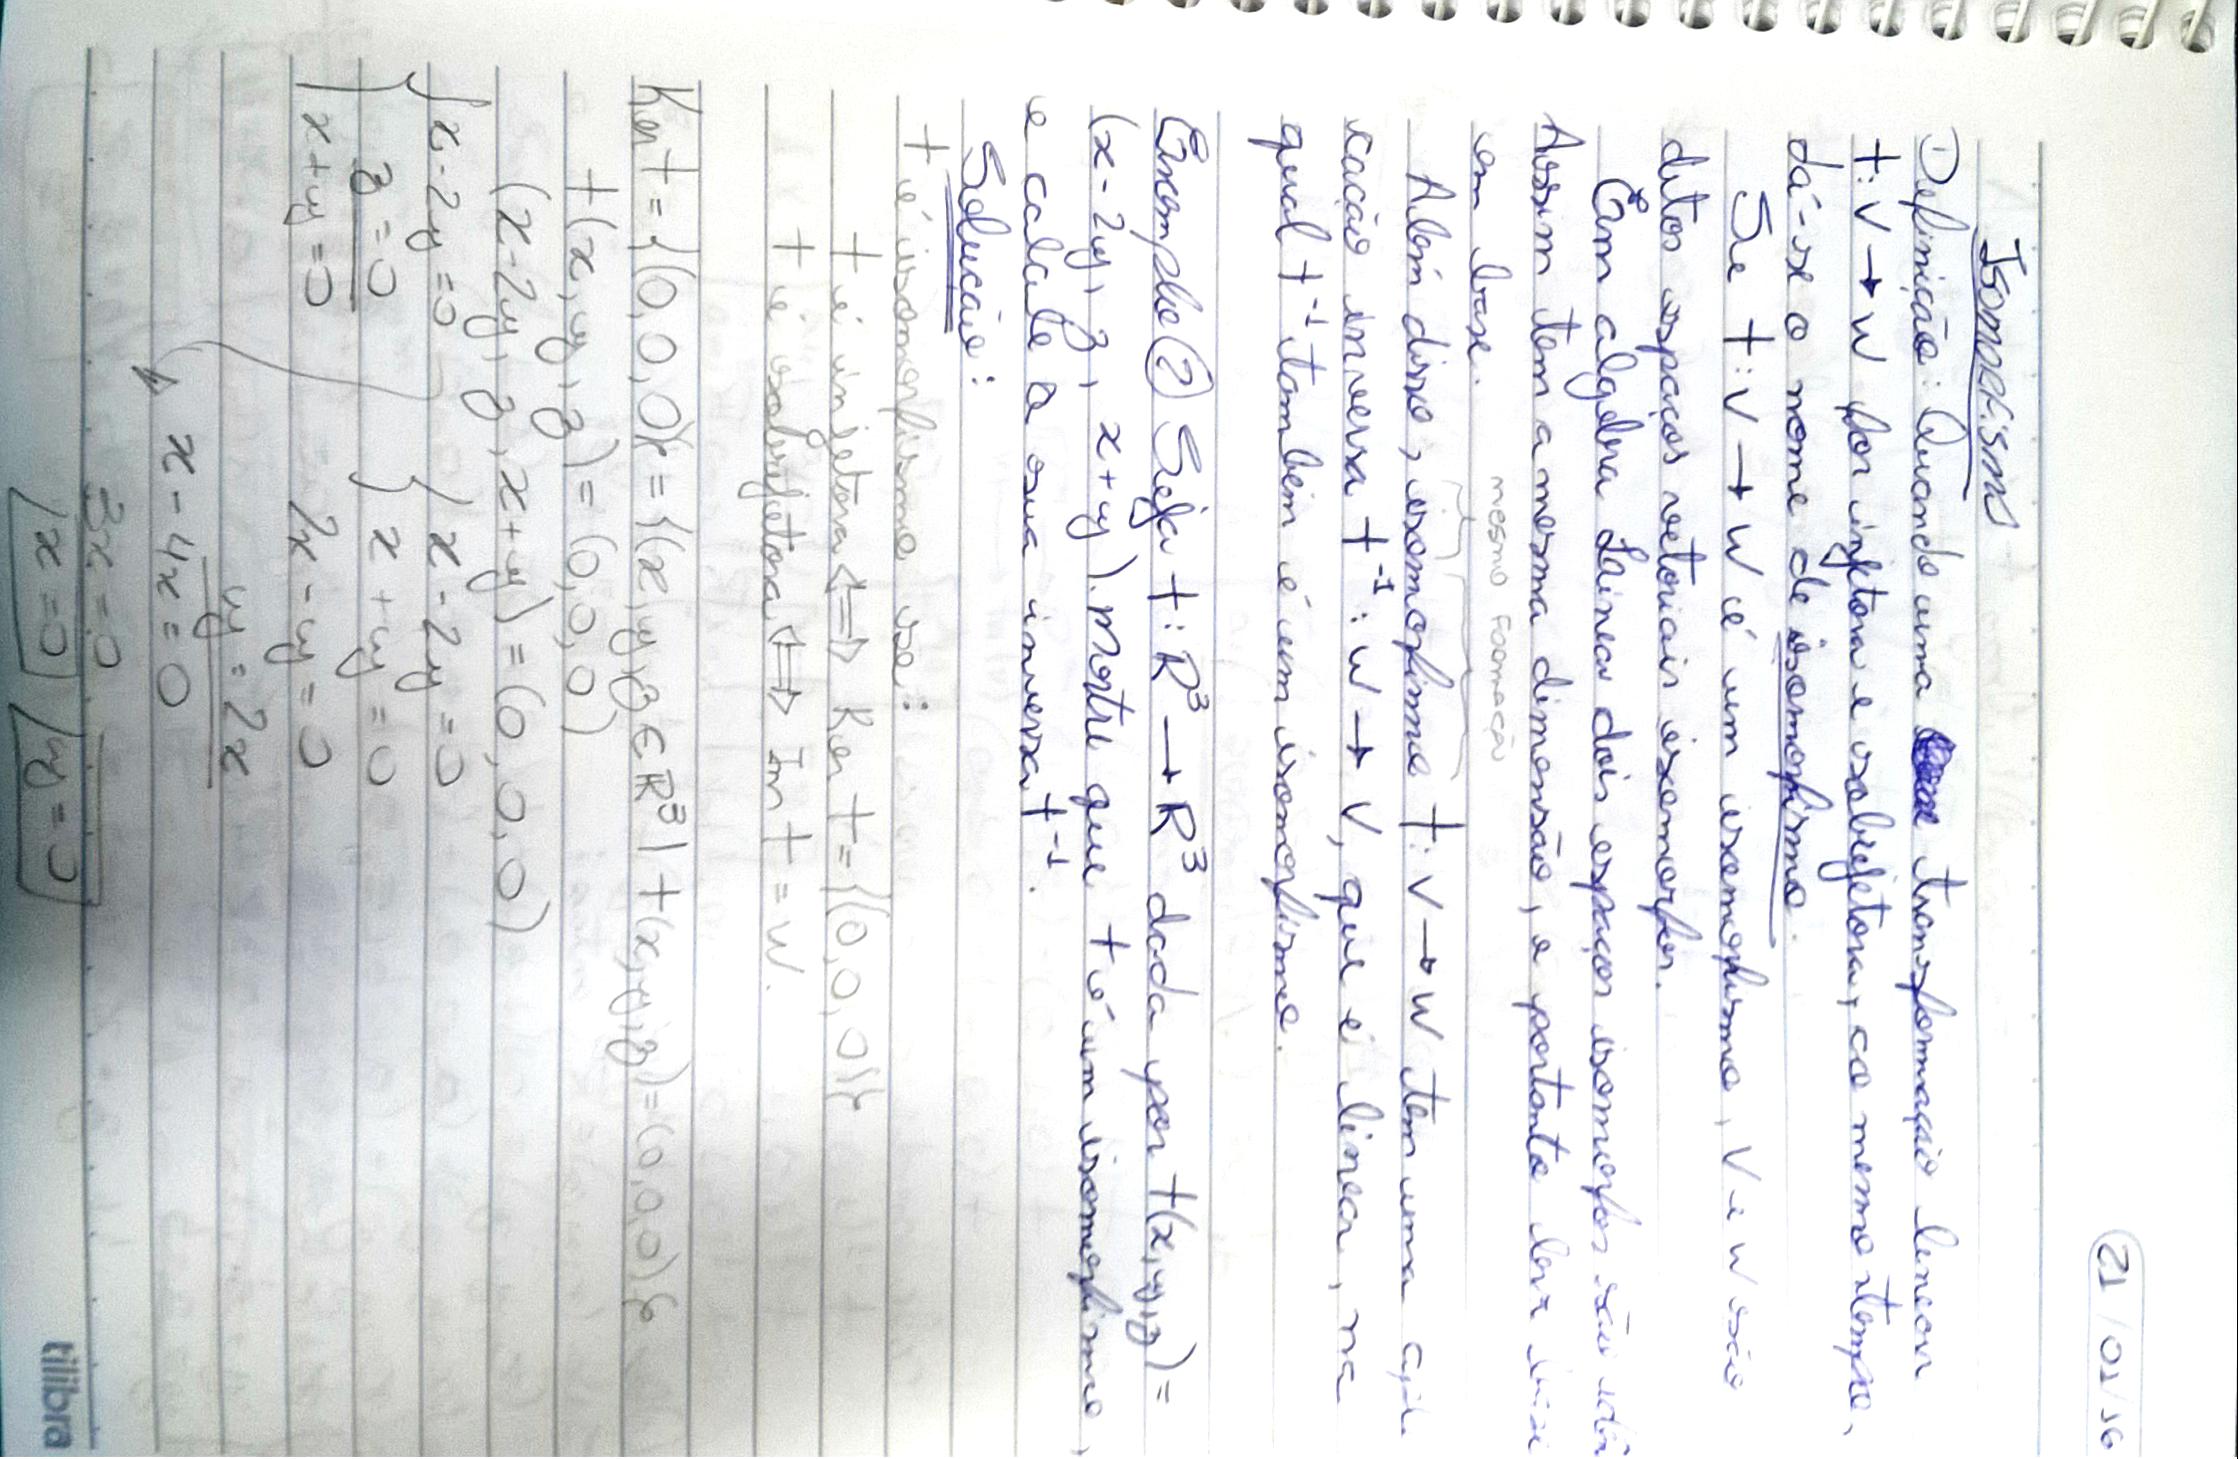 21/01/16
Isomorfismo
Definição: Quando uma transformação linear
T: V → W for injetora e sobrejetora, ao mesmo tempo,
dá-se o nome de isomorfismo.
Se T: V → W é um isomorfismo, V e W são
ditos espaços vetoriais isomorfos.
Em algebra Linear dois espaços isomorfos são
Assim tem a mesma dimensão, e portanto leva base
em base.
mesmo Formação
Além disso, isomorfismo T: V → W tem uma apli
cação inversa T⁻¹: W → V, que é linear, na
qual T⁻¹ também é um isomorfismo.
Exemplo ② Seja T: R³ → R³ dada por T(x, y, z) =
(x - 2y, z, x + y). Mostre que T é um isomorfismo,
e calcule a sua inversa T⁻¹.
Solução:
T é isomorfismo se:
T é injetora ⟺ Ker T = {(0, 0, 0)}
T é sobrejetora ⟺ Im T = W.
Ker T = {(0, 0, 0)} = {(x, y, z ∈ R³ | T(x, y, z) = (0,0,0)}
T(x, y, z) = (0, 0, 0)
(x - 2y, z, x + y) = (0, 0, 0)
{x - 2y = 0 {x - 2y = 0
z = 0 x + y = 0
x + y = 0 2x - y = 0
y = 2x
x - 4x = 0
3x = 0
x = 0 y = 0
tilibra